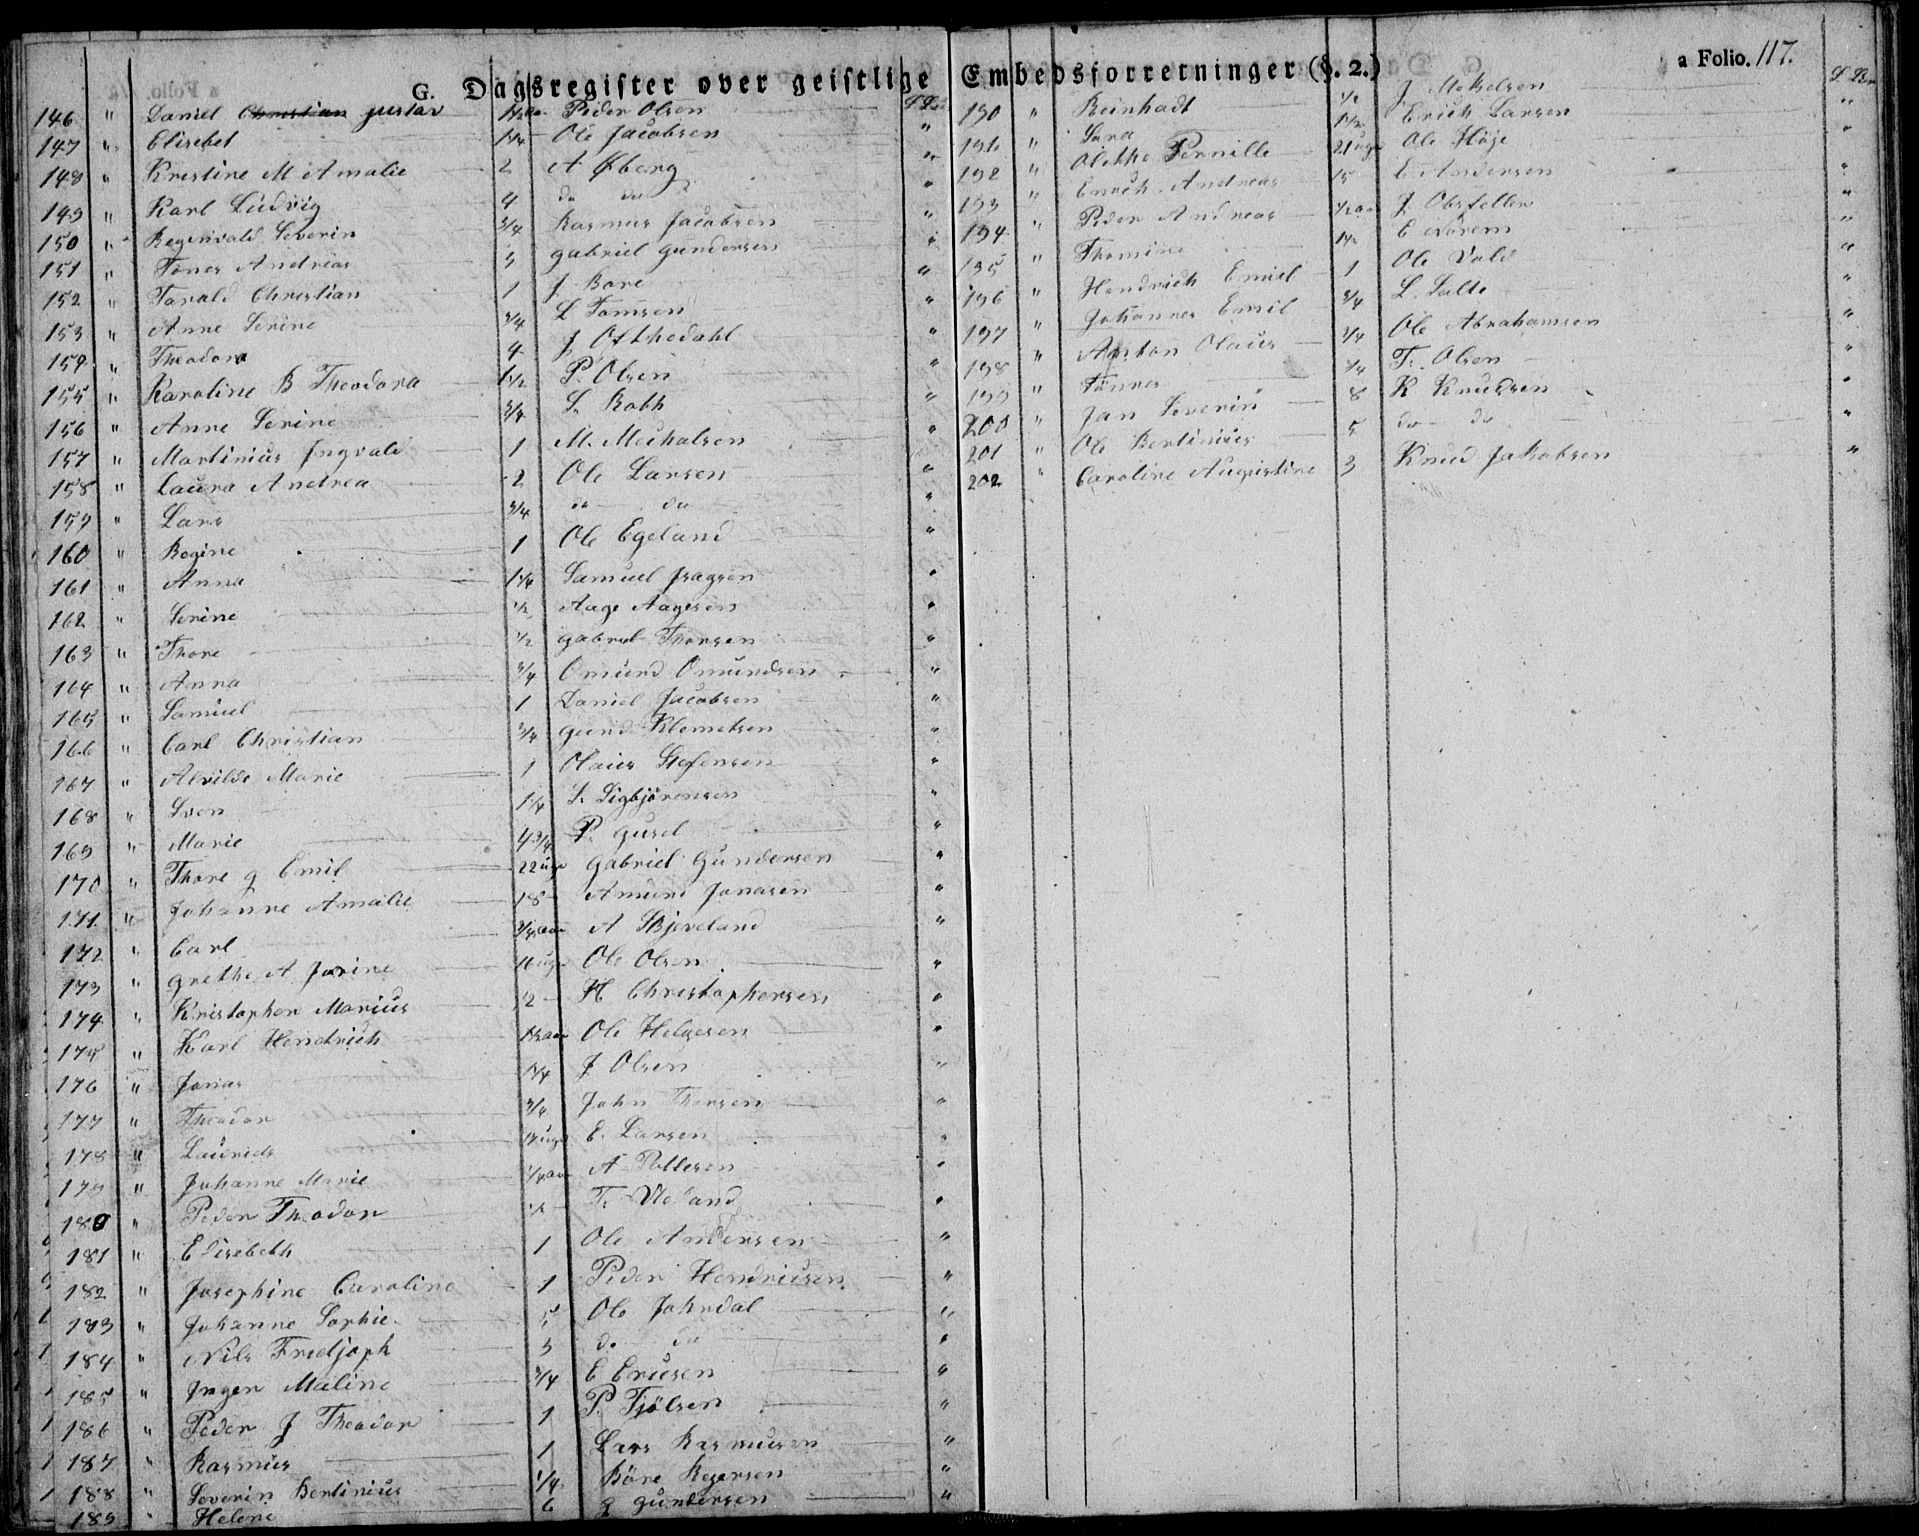 G. Dagsregister over geistlige Embedsforretninger (§. 2.) a Folio. 117.
146 " Daniel Christian gustav 1½ aar Peder Olsen
147 " Elisebet 1¼ Ole Jacobsen "
148 " Kristine M Amalie 2 A Øberg "
149 " Karl Ludvig 4 do do "
150 " Regenvald Severin ¾ Rasmus Jacobsen "
151 " Tønes Andreas 3 gabriel gundersen "
152 " Tarald Christian 1 J. Bore "
153 " Anne Serine ¾ L Tomsen "
154 " Theodora 4 J Ofthedahl "
155 " Karoline B Theodora 1½ P. Olsen "
156 " Anne Serine ¾ S. Roth "
157 " Martinius Ingvald 1 M. Michalsen "
158 " Laura Andrea 2 Ole Larsen "
159 " Lars ¾ do do "
160 " Regine 1 Ole Egeland "
161 " Anna 1¼ Samuel Isagsen "
162 " Serine ½ Aage Aagesen "
163 " Thore ½ gabriel Thorsen "
164 " Anna ¾ Omund Omundsen "
165 " Samuel 1 Daniel Jacobsen "
166 " Carl Christian ¾ Klometsen "
167 " Alvilde Marie 1 Olaus Stefensen "
168 " Sven 1¼ S. Sigbjörensen "
169 " Marie 4¾ P. gusel "
170 " Thore g Emil 22 uge gabriel gundersen "
171 " Johanne Amalie 18 Amund Jonasen "
172 " Carl ¾ aar A Skjeveland "
173 " grethe A Jorine 16 uge Ole Olsen "
174 " Kristopher Marius 2 H Christophersen "
175 " Karl Hendrich 1½ aar Ole Helgesen "
176 " Jonas 1¼ J Olsen "
177 " Theodor ¾ John Thorsen "
178 " Laurids uge E. Larsen "
179 " Johanne Marie ¼ aar A Pollesen "
180 " Peder Theodor T. Ueland "
181 " Elisebeth 1 Ole Andersen "
182 " Josephine Caroline 1 Peder Hendricsen "
183 " Johanne Sophie 5 Ole Johndal "
184 " Nils Fredjoph 3 do do "
185 " Inger Maline ¾ E Ericsen "
186 " Peder J Theodor 1 P. Tjölsen "
187 " Rasmus 1 Lars Rasmusen "
188 " Severin Bertinius ¼Böre Regersen "
189 " Helene 6 g gundersen "
190 " Reinhadt ½ J Mekelsen "
191 " Sara 1½ Erich Larsen "
192 " Olethe Pernille 21 uge Ole Höje "
193 " Enuch Andreas 15 E Andersen "
194 " Peder Andreas ½ aar J Obsfelder "
195 " Thomine 1½ E Norem "
196 " Hendrich Emiel 1 Ole Vold "
197 " Johannes Emil ¾ L. Salte "
198 " Anton Olaus ¾ Ole Abrahamsen "
199 " Tönnes ¼ T. Olsen "
200 " Jan Severin 8 K Knudsen "
201 " Ole Bertinius 5 do do "
202 " Caroline Augustine 3 Knud Jakobsen "